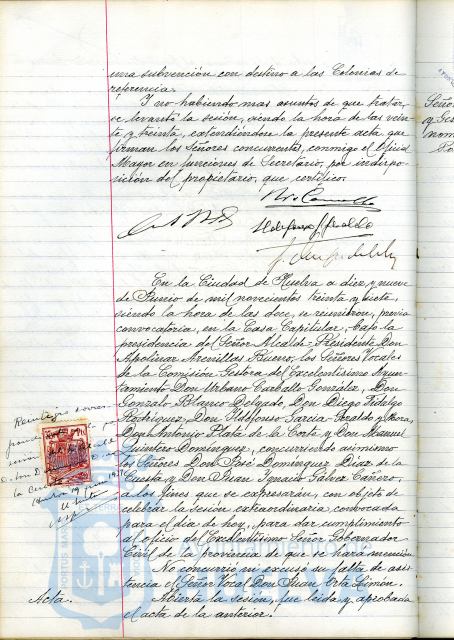 una subvención con destino a las Colonias de
referencia.
Y no habiendo mas asuntos de que tratar,
se levantó la sesión, siendo la hora de las vein-
te y treinta, extendiéndose la presente acta que
firman los Señores concurrentes, conmigo el Oficial
Mayor en funciones de Secretario, por indispo-
sición del propietario, que certifico.
En la Ciudad de Huelva a diez y nueve
de Junio de mil novecientos treinta y siete,
siendo la hora de las doce, se reunieron, previa
convocatoria, en la Casa Capitular, bajo la
presidencia del Señor Alcalde-Presidente Don
Apolinar Arenillas Rueno, los Señores Vocales
de la Comisión Gestora del Excelentísimo Ayun-
tamiento Don Urbano Carballo González, Don
Gonzalo Blanco Delgado, Don Diego Fidalgo
Rodríguez, Don Ildefonso García-Geraldo y Mora,
Don Antonio Plata de la Corte y Don Manuel
Quintero Domínguez, concurriendo asimismo
los Señores Don José Domínguez Díaz de la
Cuesta y Don Juan Ignacio Gálvez Cañero,
a los fines que se expresarán, con objeto de
celebrar la sesión extraordinaria convocada
para el día de hoy, para dar cumplimiento
al oficio del Excelentísimo Señor Gobernador
Civil de la provincia de que se hará mención.
No concurrió ni excusó su falta de asis-
tencia el Señor Vocal Don Juan Orta Limón.
Acta. Abierta la sesión, fue leída y aprobada
el acta de la anterior.
Reintegro
Señor
y Ge
nom